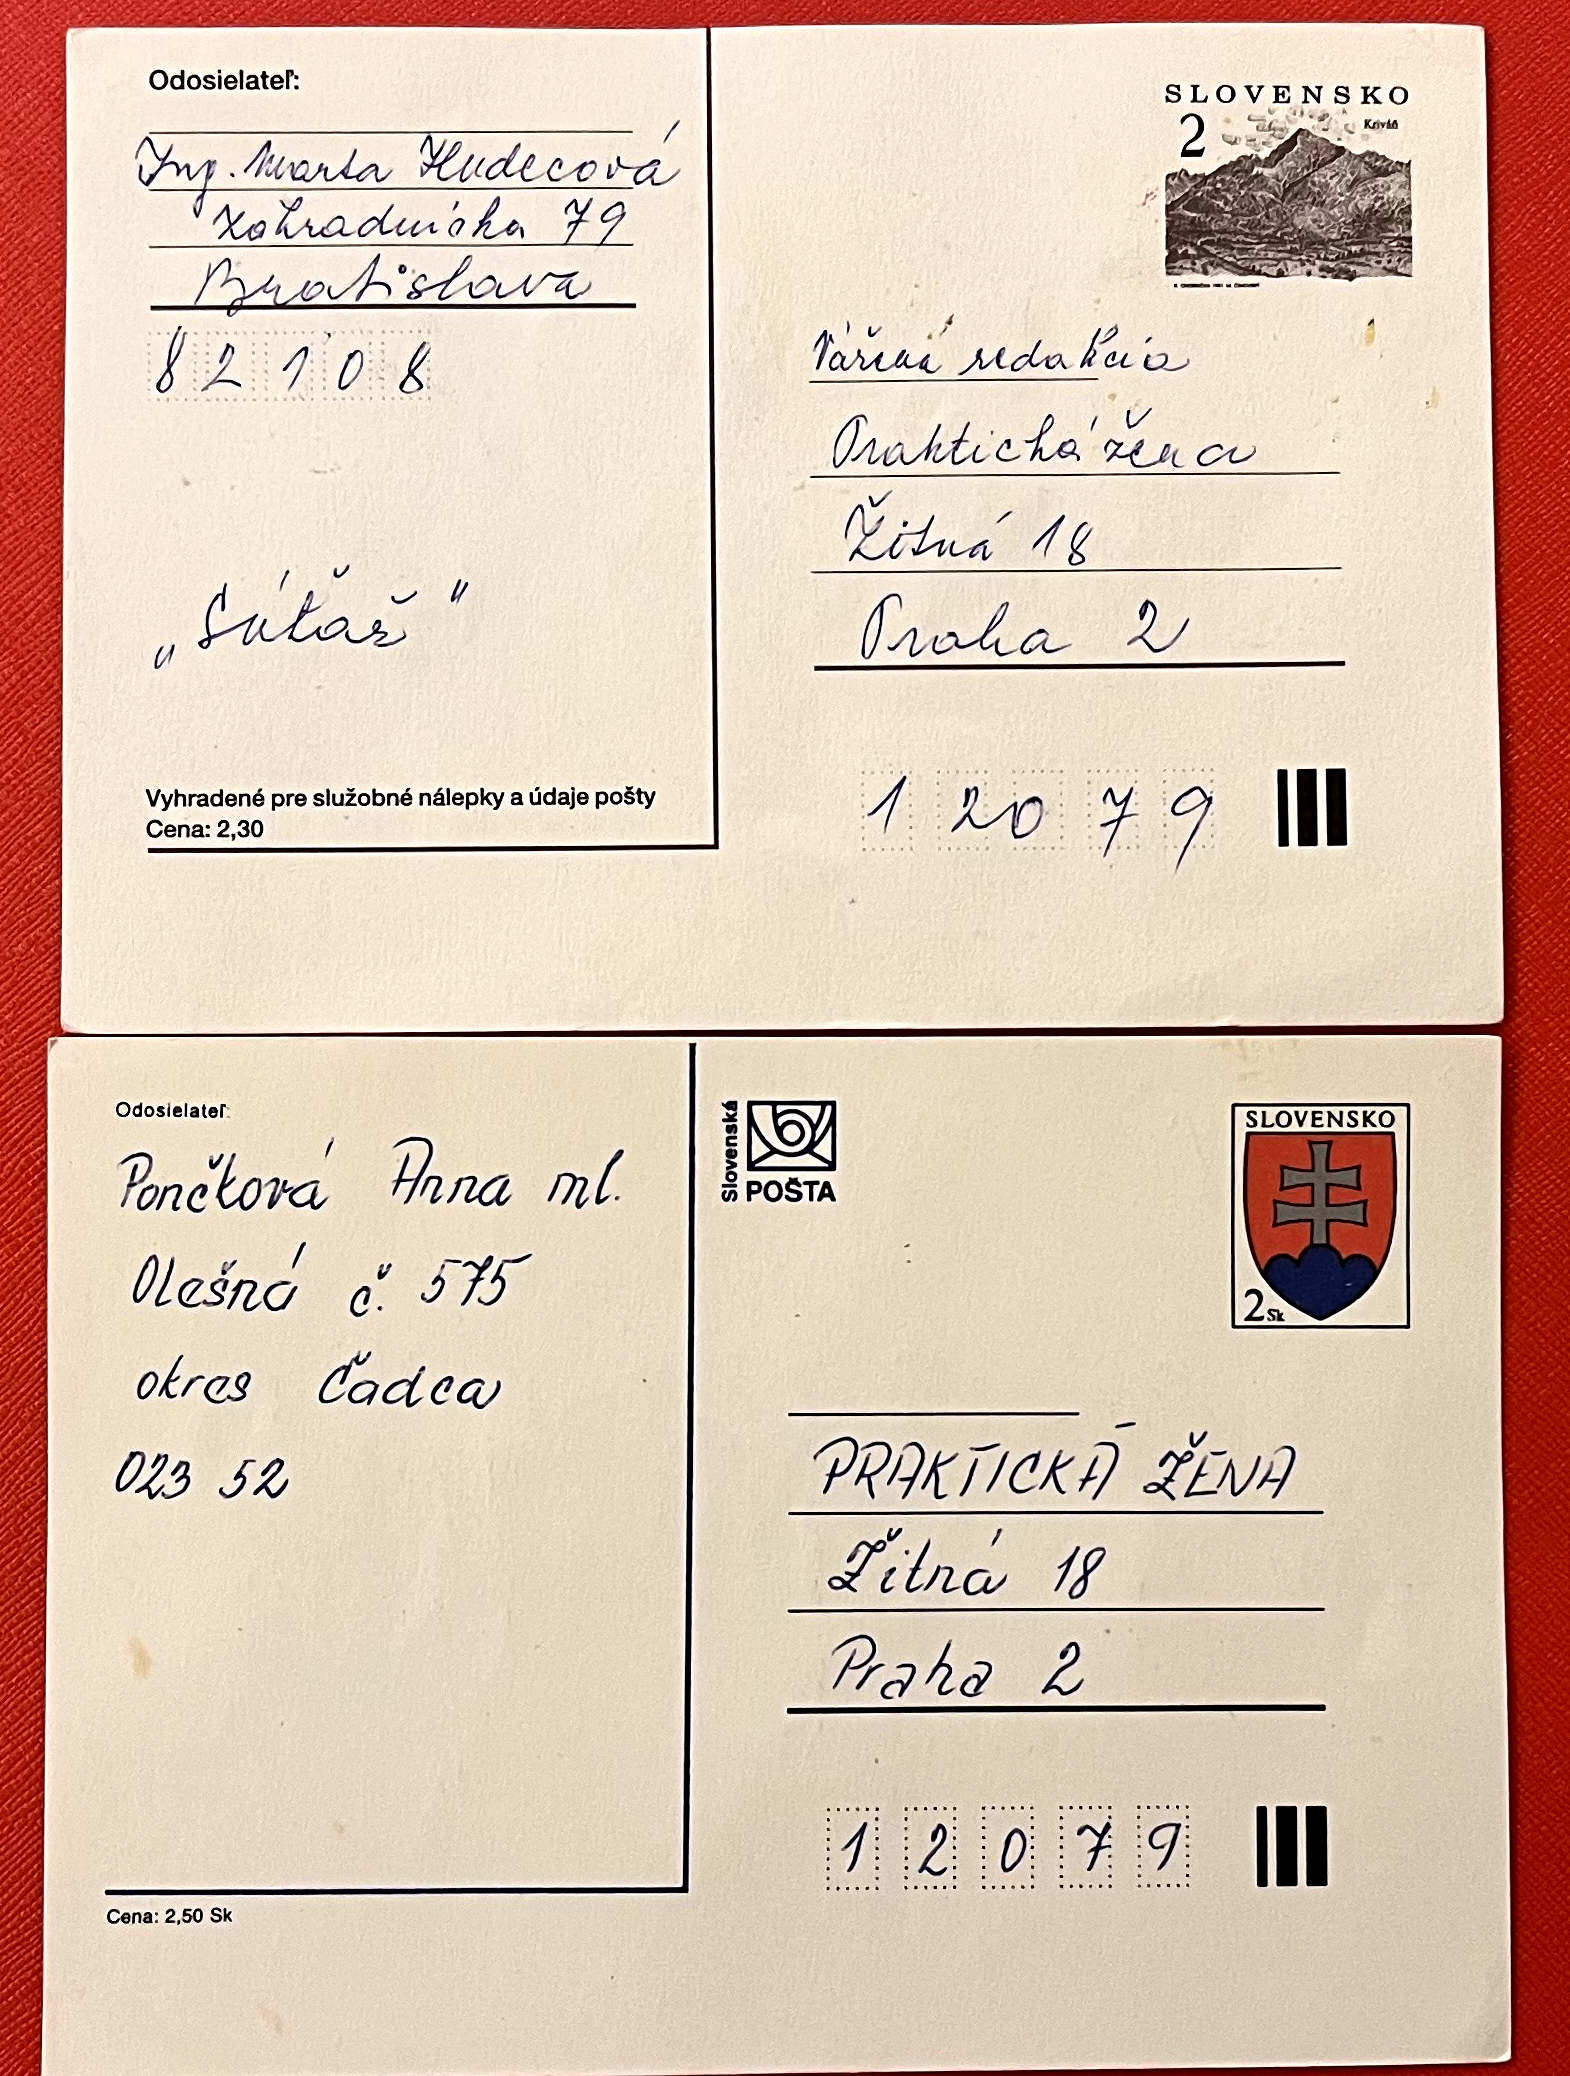 Odosielateľ:
Ing. Marta Hudecová
Záhradnícka 79
Bratislava
82108
„Súťaž"
Vyhradené pre služobné nálepky a údaje pošty
Cena: 2,30
SLOVENSKO
2
Kriváň
Vážená redakcia
Praktická žena
Žitná 18
Praha 2
12079
Odosielateľ:
Pončková Anna ml.
Olešná č. 575
okres Čadca
023 52
Cena: 2,50 Sk
Slovenská
POŠTA
SLOVENSKO
2 Sk
PRAKTICKÁ ŽENA
Žitná 18
Praha 2
12079